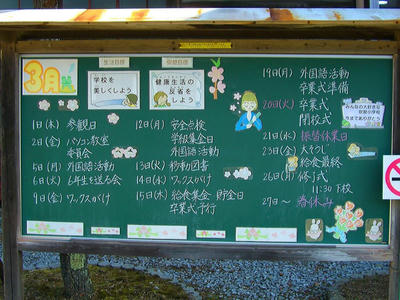 3月
生活目標
学校を
美しくしよう
保健目標
健康生活の
反省を
しよう
1日(木) 参観日
2日(金) パソコン教室
委員会
5日(月) 外国語活動
6日(火) 6年生を送る会
9日(金) ワックスがけ
12日(月) 安全点検
学級集金日
外国語活動
13日(火) 移動図書
14日(水) ワックスがけ
15日(木) 給食集金・貯金日
卒業式予行
19日(月) 外国語活動
卒業式準備
20日(火) 卒業式
閉校式
21日(水) 振替休業日
23日(金) 大そうじ
給食最終
26日(月) 修了式
11:30下校
27日〜 春休み
みんなの大好きな
今までありがとう